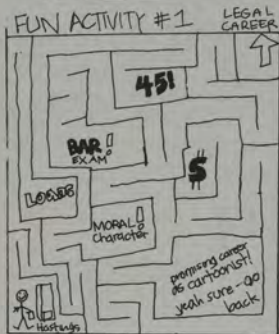 FUN ACTIVITY #1
LEGAL
CAREER
45!
BAR!
EXAM
$
LOANS!
MORAL!
Character
promising career
as cartoonist!
yeah sure - go
back
Hastings